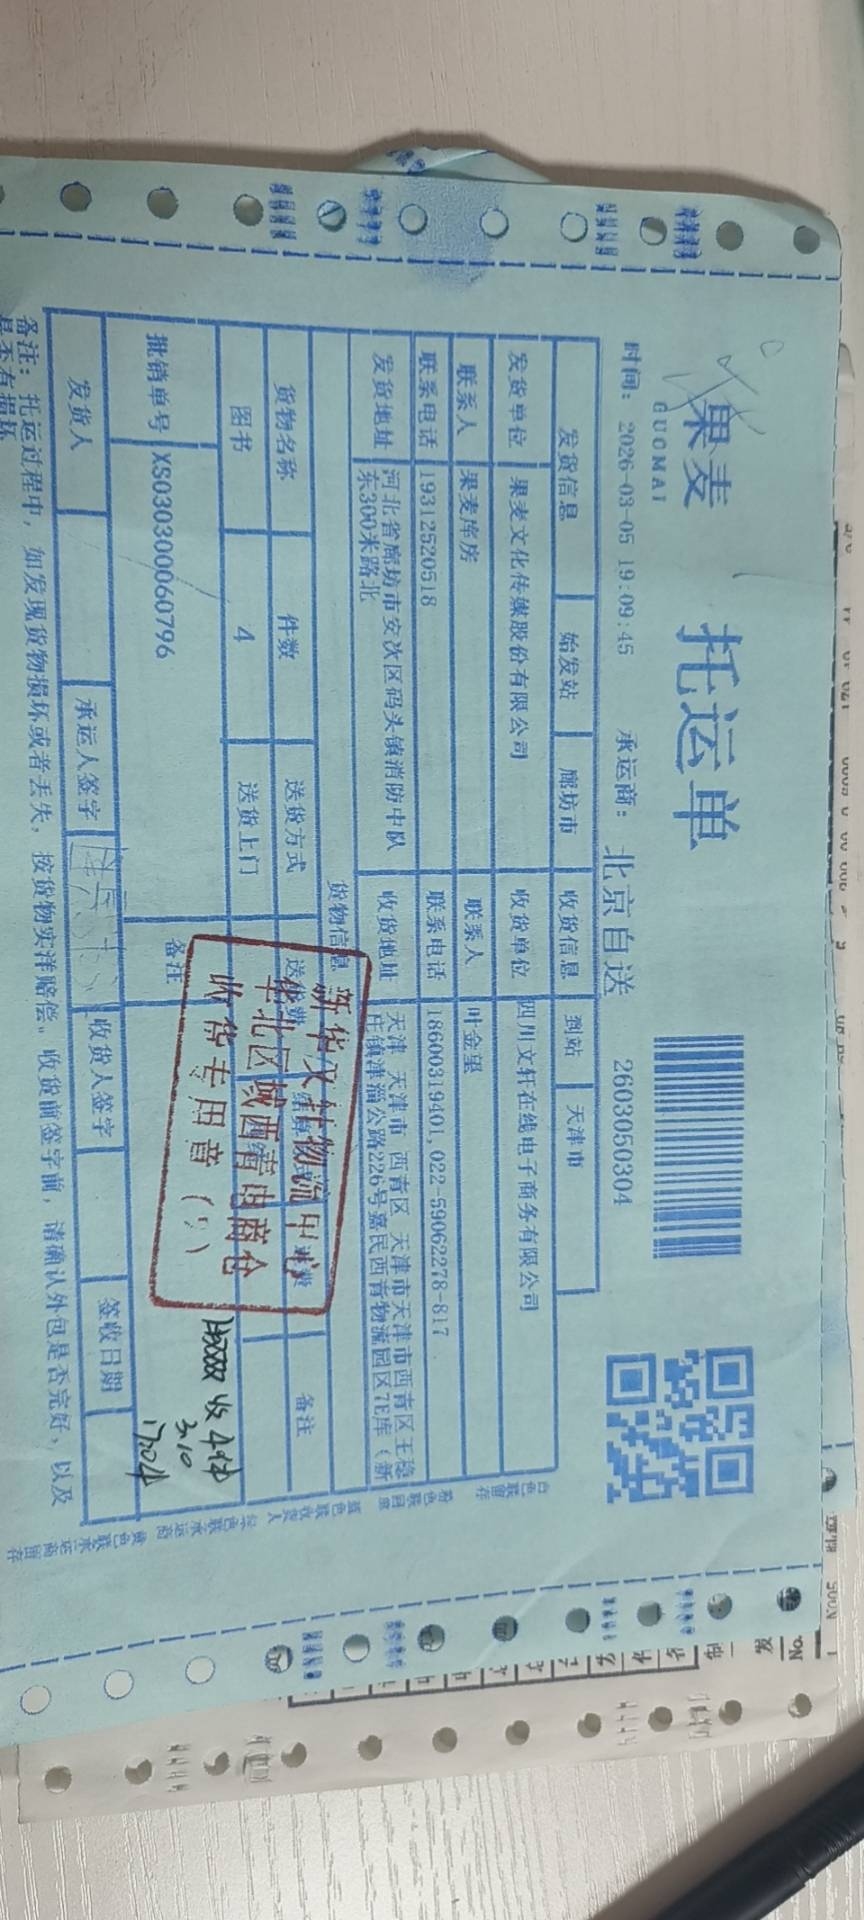 果麦
GUOMAI
托运单
时间: 2026-03-05 19:09:45 承运商: 北京自送 2603050304
发货信息 始发站 廊坊市 收货信息 到站 天津市
发货单位 果麦文化传媒股份有限公司 收货单位 四川文轩在线电子商务有限公司
联系人 果麦库房 联系人 叶金望
联系电话 19312520518 联系电话 18600319401,022-59062278-817
发货地址 河北省廊坊市安次区码头镇消防中队
东300米路北
收货地址 天津 天津市 西青区 天津市天津市西青区王稳
庄镇津淄公路226号嘉民西青物流园区7E库(新
货物信息
货物名称 件数 送货方式 送货费 备注
图书 4 送货上门
批销单号 XS030300060796 备注
新华文轩物流中心
华北区域西青电商仓
收货专用章
收4件
3.10
发货人 承运人签字 收货人签字 签收日期
备注: 托运过程中, 如发现货物损坏或者丢失, 按货物实洋赔偿。收货前签字前, 请确认外包是否完好, 以及
是否有损坏
白色联留存
粉色联回单
蓝色联收货人
绿色联承运商
黄色联承运商留存